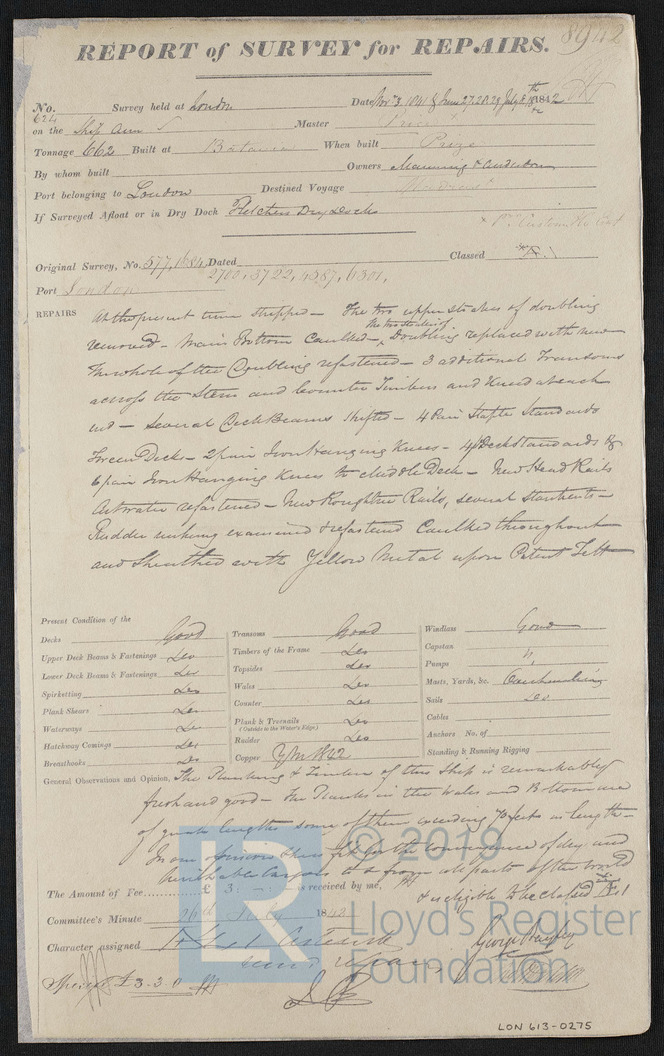 8942
REPORT of SURVEY for REPAIRS.
No. 624 Survey held at London Date Nov 3. 1841 & June 27. 28. 29 July 8 1842
on the Ship Ann Master Price
Tonnage 662 Built at Batavia When built Prize
By whom built Owners Manning & Anderdon
Port belonging to London Destined Voyage
If Surveyed Afloat or in Dry Dock Fletchers Dry Docks
Original Survey, No. 577, 1684, Dated Classed
2700, 3722, 4587, 6301,
Port London
REPAIRS At the present time stripped – The two upper strakes of doubling
removed – Main Bottom Caulked – the two strakes of Doubling replaced with new
The whole of the Doubling refastened – 3 additional Transoms
across the Stern and Counter Timbers and Kneed at each
end – Several Deck Beams Shifted – 4 Pair Staple Standards
Deck – 2 pair Iron Hanging Knees – 4 Deck standards &
6 pair Iron Hanging Knees to Middle Deck – New Head Rails
Cutwater refastened – New Roughtree Rails, several stantients –
Rudder examined & refastened Caulked throughout
and Sheathed with Yellow Metal upon Patent Felt
Present Condition of the
Decks Good
Upper Deck Beams & Fastenings Do
Lower Deck Beams & Fastenings Do
Spirketting Do
Plank Shears Do
Waterways Do
Hatchway Comings Do
Breasthooks Do
Transoms Good
Timbers of the Frame Do
Topsides Do
Wales Do
Counter Do
Plank & Treenails Do
(Outside in the Water's Edge.)
Rudder Do
Copper Y M 1842
Windlass Good
Capstan
Pumps
Masts, Yards, &c. Overhauling
Sails Do
Cables
Anchors No. of
Standing & Running Rigging
General Observations and Opinion, The Planking & Timber of this Ship is remarkably
fresh and good – The Planks in the Wales and Bottom are
of great lengths some of them exceeding 70 feet in length –
In our opinion she is fit for the conveyance of dry and
perishable Cargoes to & from all parts of the World
& is eligible to be classed Æ 1
The Amount of Fee £ 3: –: – is received by me,
Committee's Minute 26th July 1842
Character assigned
George Bayley
Special £3.3.0
© 2019
Lloyd's Register
Foundation
LR
LON 613-0275